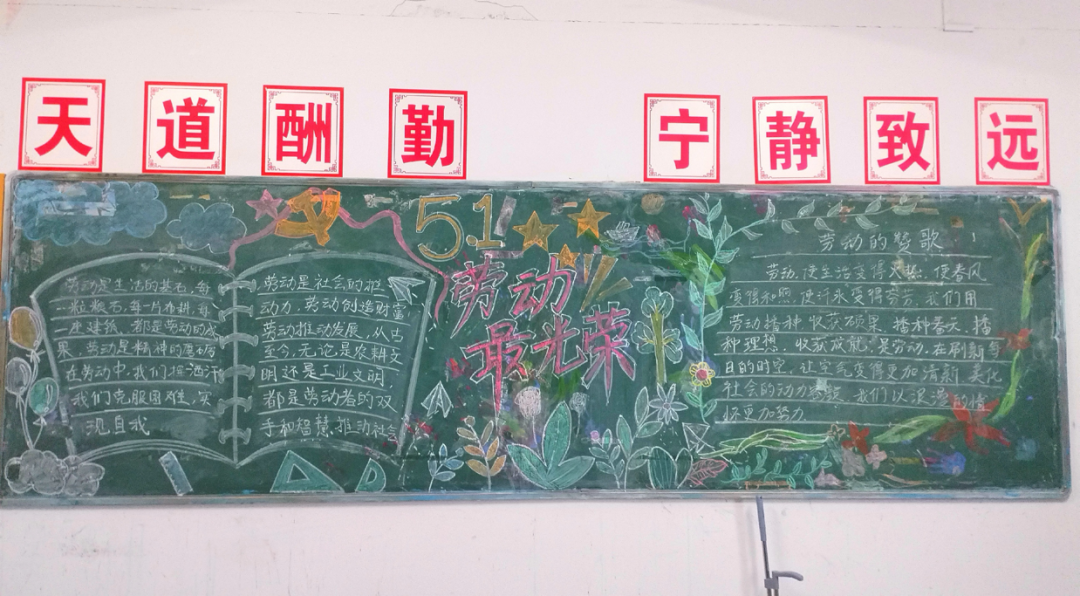 天道酬勤
宁静致远
51
劳动
最光荣
劳动是生活的基石,每
一粒粮食,每一片布料,每一
座建筑,都是劳动的成
果,劳动是精神的
在劳动中,我们挥洒汗
我们克服困难,实
现自我
劳动是社会的
动力,劳动创造财富,
劳动推动发展,从古
至今,无论是农耕文
明还是工业文明,
都是劳动者的双
手和智慧,推动社会
劳动的赞歌
劳动,使生活变得 使春风
变得和煦,使汗水变得芬芳,我们用
劳动播种,收获硕果,播种春天,播
种理想,收获 是劳动,在刷新每
日的时空,让空气变得更加清新,美化
社会的动力 我们以浪漫的情
怀更加努力